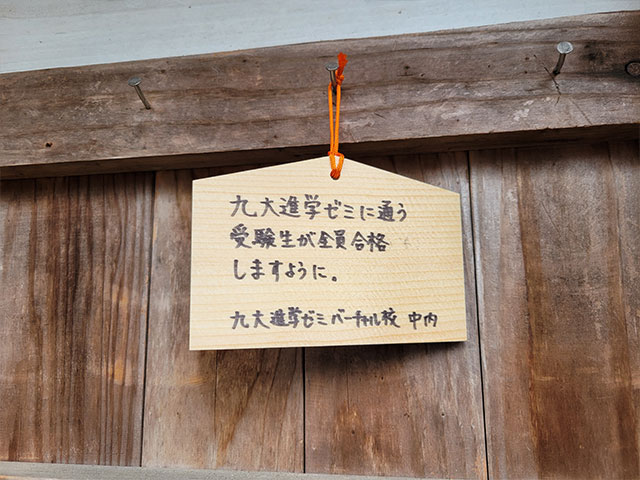 九大進学ゼミに通う
受験生が全員合格
しますように。
九大進学ゼミバーチャル校 中内